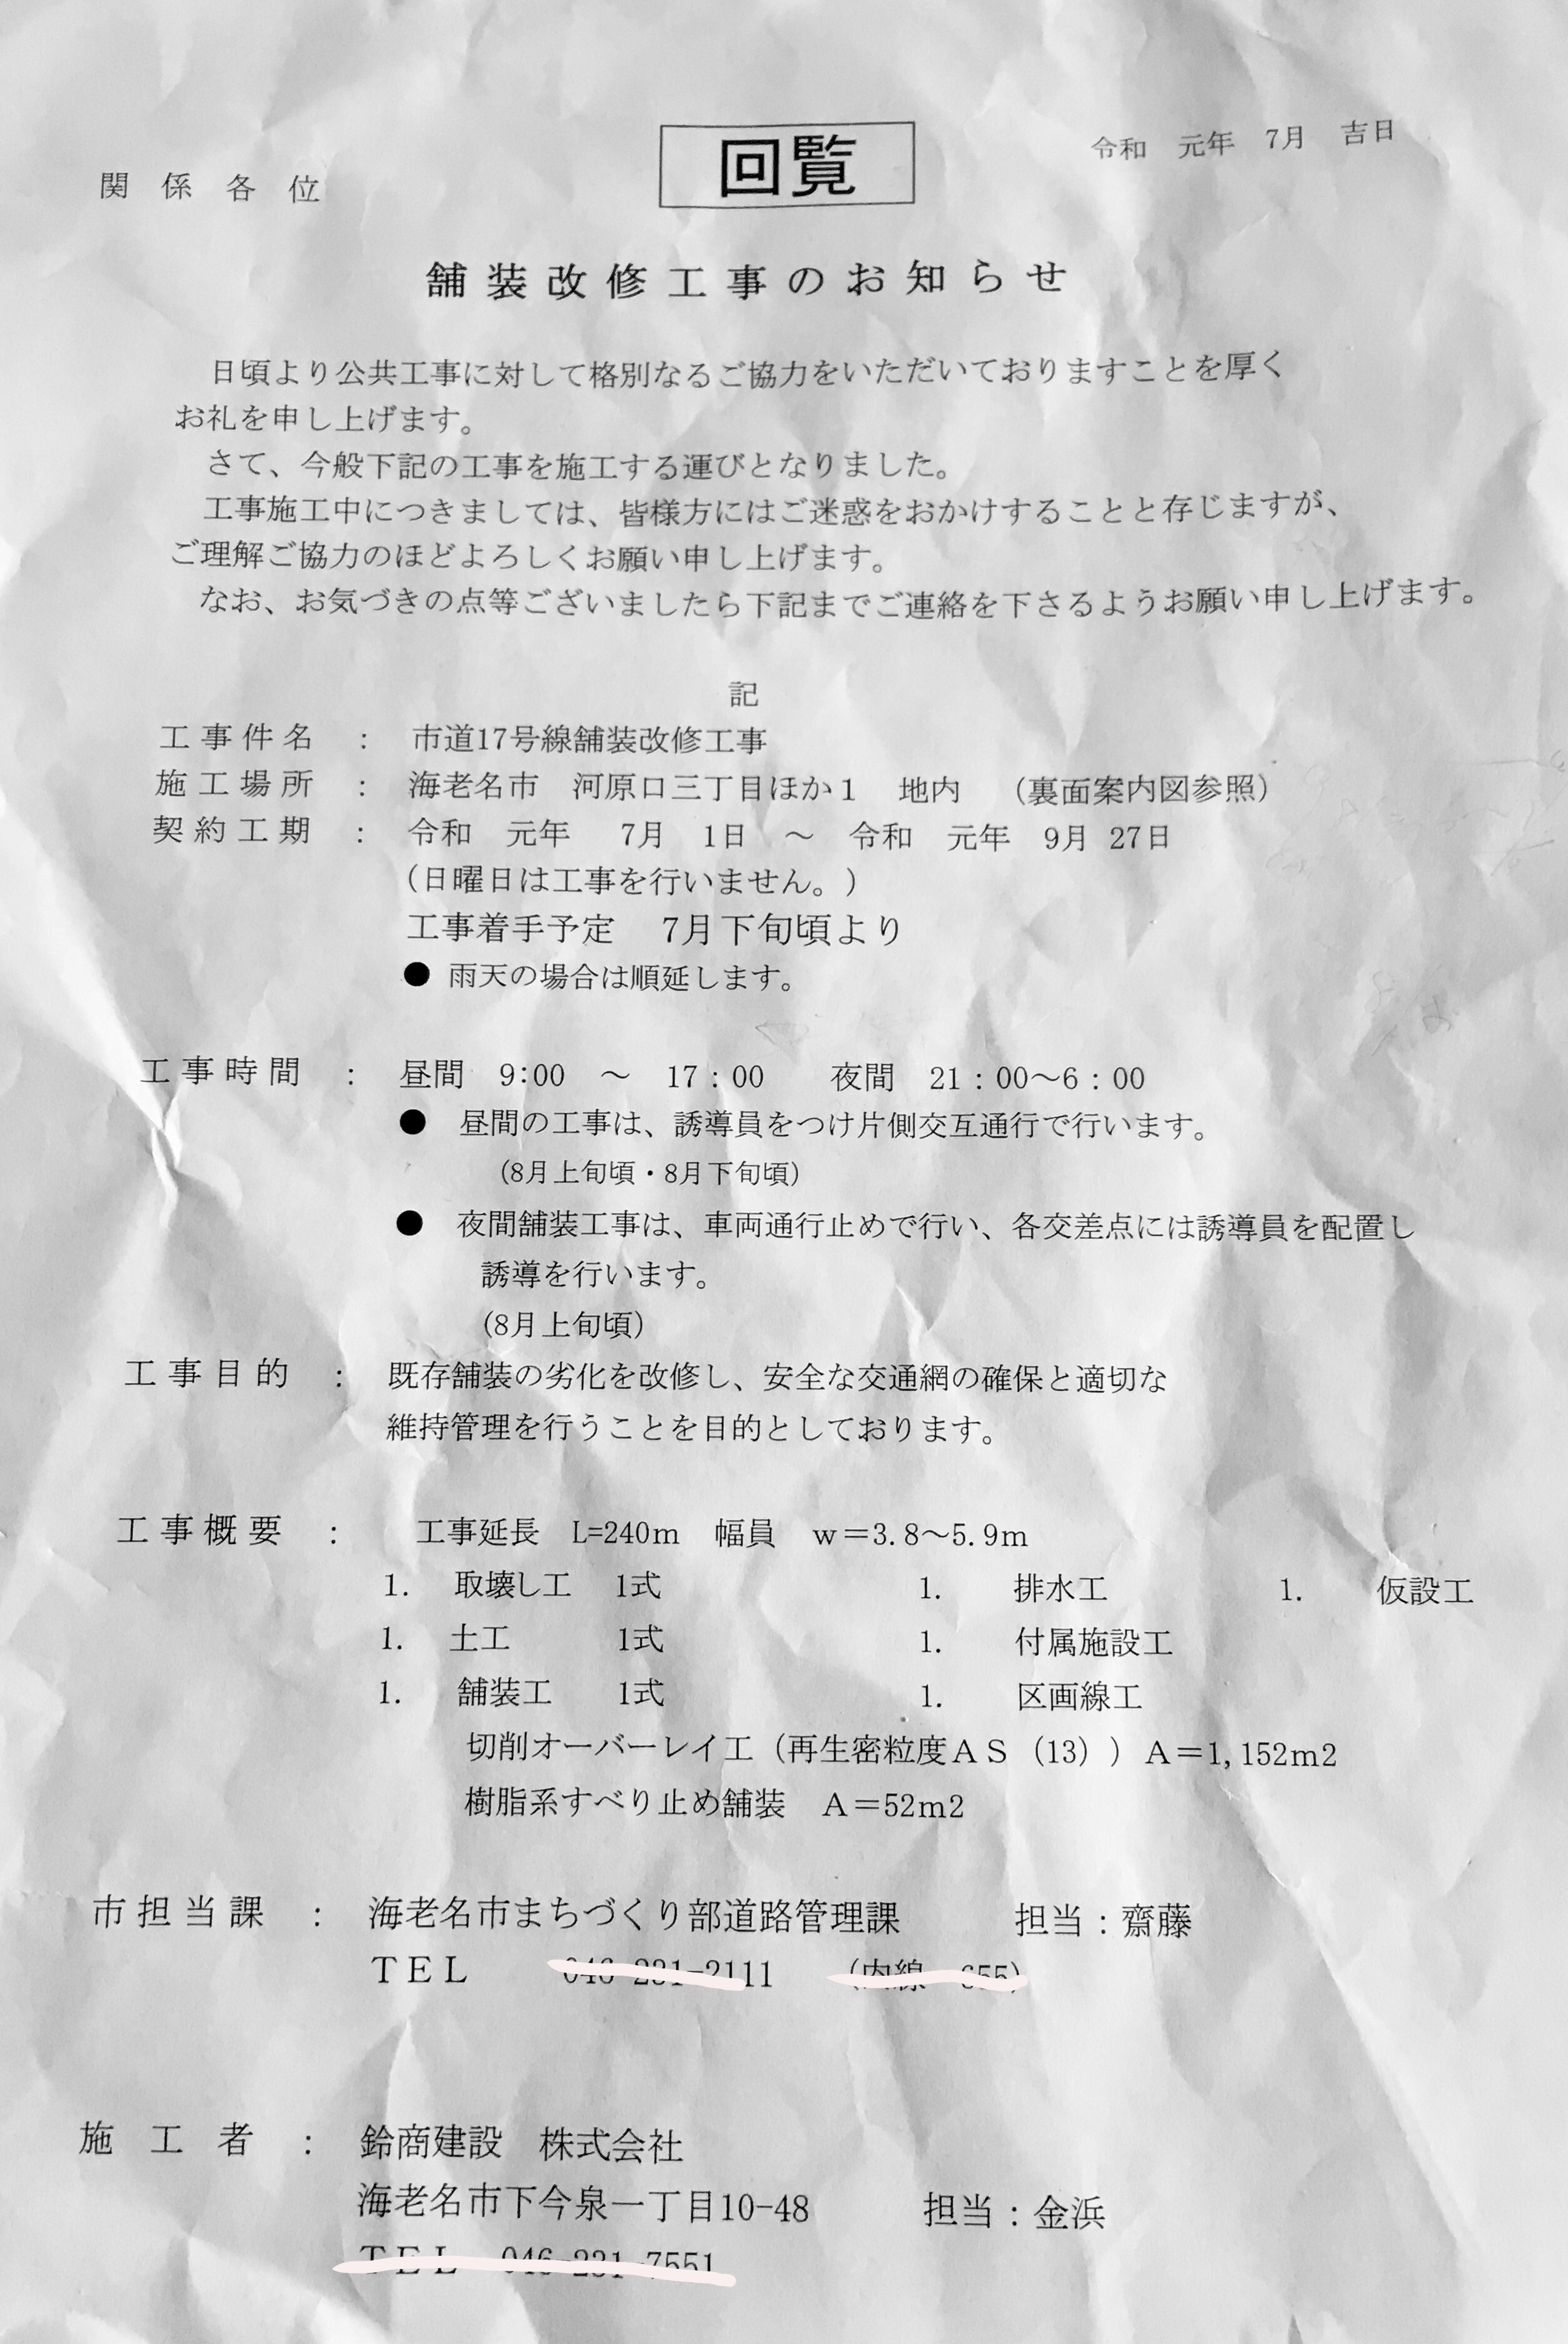 回覧
令和　元年　7月　吉日
関　係　各　位
舗装改修工事のお知らせ
日頃より公共工事に対して格別なるご協力をいただいておりますことを厚く
お礼を申し上げます。
さて、今般下記の工事を施工する運びとなりました。
工事施工中につきましては、皆様方にはご迷惑をおかけすることと存じますが、
ご理解ご協力のほどよろしくお願い申し上げます。
なお、お気づきの点等ございましたら下記までご連絡を下さるようお願い申し上げます。
記
工事件名　：　市道17号線舗装改修工事
施工場所　：　海老名市　河原口三丁目ほか１　地内　（裏面案内図参照）
契約工期　：　令和　元年　7月　1日　～　令和　元年　9月 27日
（日曜日は工事を行いません。）
工事着手予定　7月下旬頃より
● 雨天の場合は順延します。
工事時間　：　昼間　9:00　～　17：00　　夜間　21：00～6：00
●　昼間の工事は、誘導員をつけ片側交互通行で行います。
（8月上旬頃・8月下旬頃）
●　夜間舗装工事は、車両通行止めで行い、各交差点には誘導員を配置し
誘導を行います。
（8月上旬頃）
工事目的　：　既存舗装の劣化を改修し、安全な交通網の確保と適切な
維持管理を行うことを目的としております。
工事概要　：　工事延長　L=240m　幅員　w＝3.8～5.9m
1.　取壊し工　1式　1.　排水工　1.　仮設工
1.　土工　1式　1.　付属施設工
1.　舗装工　1式　1.　区画線工
切削オーバーレイ工（再生密粒度ＡＳ（13））Ａ＝1,152m2
樹脂系すべり止め舗装　Ａ＝52m2
市担当課　：　海老名市まちづくり部道路管理課　　担当：齋藤
ＴＥＬ　046-231-2111　（内線　655）
施　工　者　：　鈴商建設　株式会社
海老名市下今泉一丁目10-48　　担当：金浜
ＴＥＬ　046-231-7551